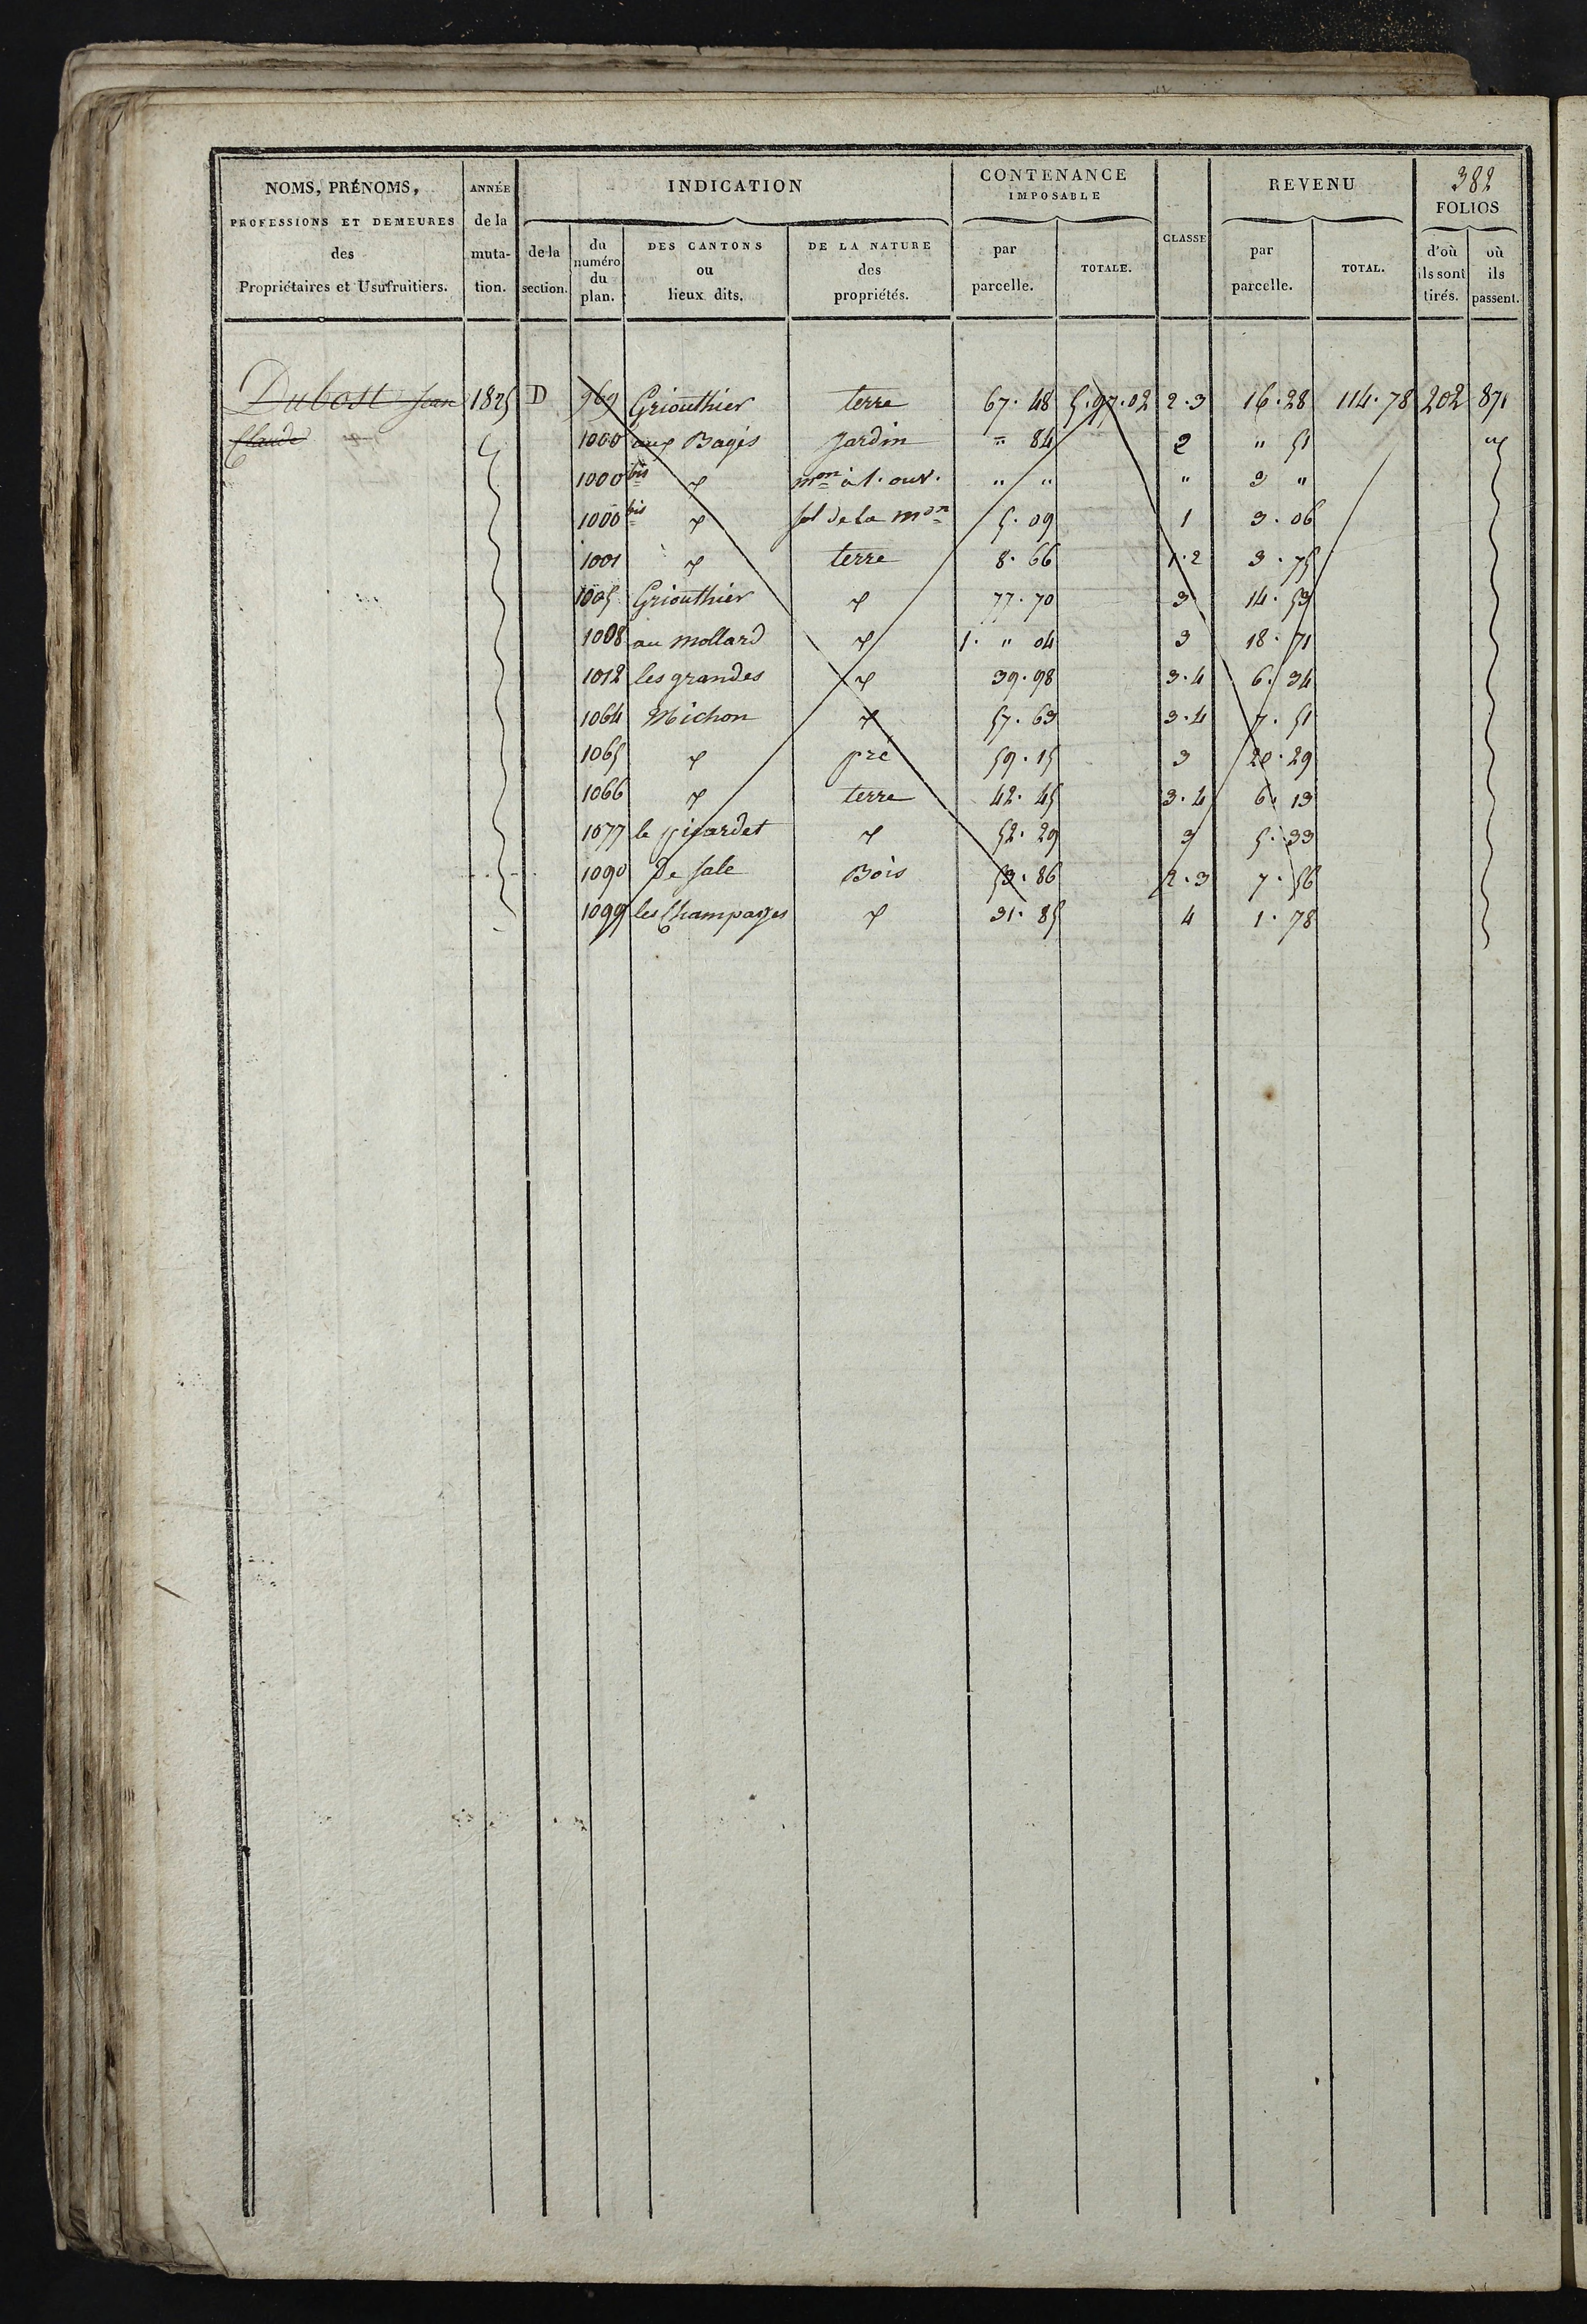 382
NOMS, PRÉNOMS, PROFESSIONS ET DEMEURES des Propriétaires et Usufruitiers.
ANNÉE de la muta- tion.
INDICATION
de la section.
du numéro du plan.
DES CANTONS ou lieux dits.
DE LA NATURE des propriétés.
CONTENANCE IMPOSABLE
par parcelle.
TOTALE.
CLASSE
REVENU
par parcelle.
TOTAL.
FOLIOS
d'où ils sont tirés.
où ils passent.
Dubost Jean 1825 D 969 Griouthier terre 67.48 5.97.02 2.3 16.28 114.78 202 871
Claude 1000 aux Bages Jardin " 84 2 " 51
1000 bis mon à 1. ouv. " " " 3 "
1000 bis sol de la mon 5.09 1 3.06
1001 terre 8.66 1.2 3.75
1005 Griouthier 77.70 3 14.53
1008 au mollard 1. " 04 3 18.71
1012 les grandes 39.98 3.4 6.34
1064 Michon 57.63 3.4 7.51
1065 pré 59.15 3 20.29
1066 terre 42.45 3.4 6.13
1077 le picardet 52.29 3 5.33
1090 De sale Bois 53.86 2.3 7.56
1099 les Champages 31.85 4 1.78